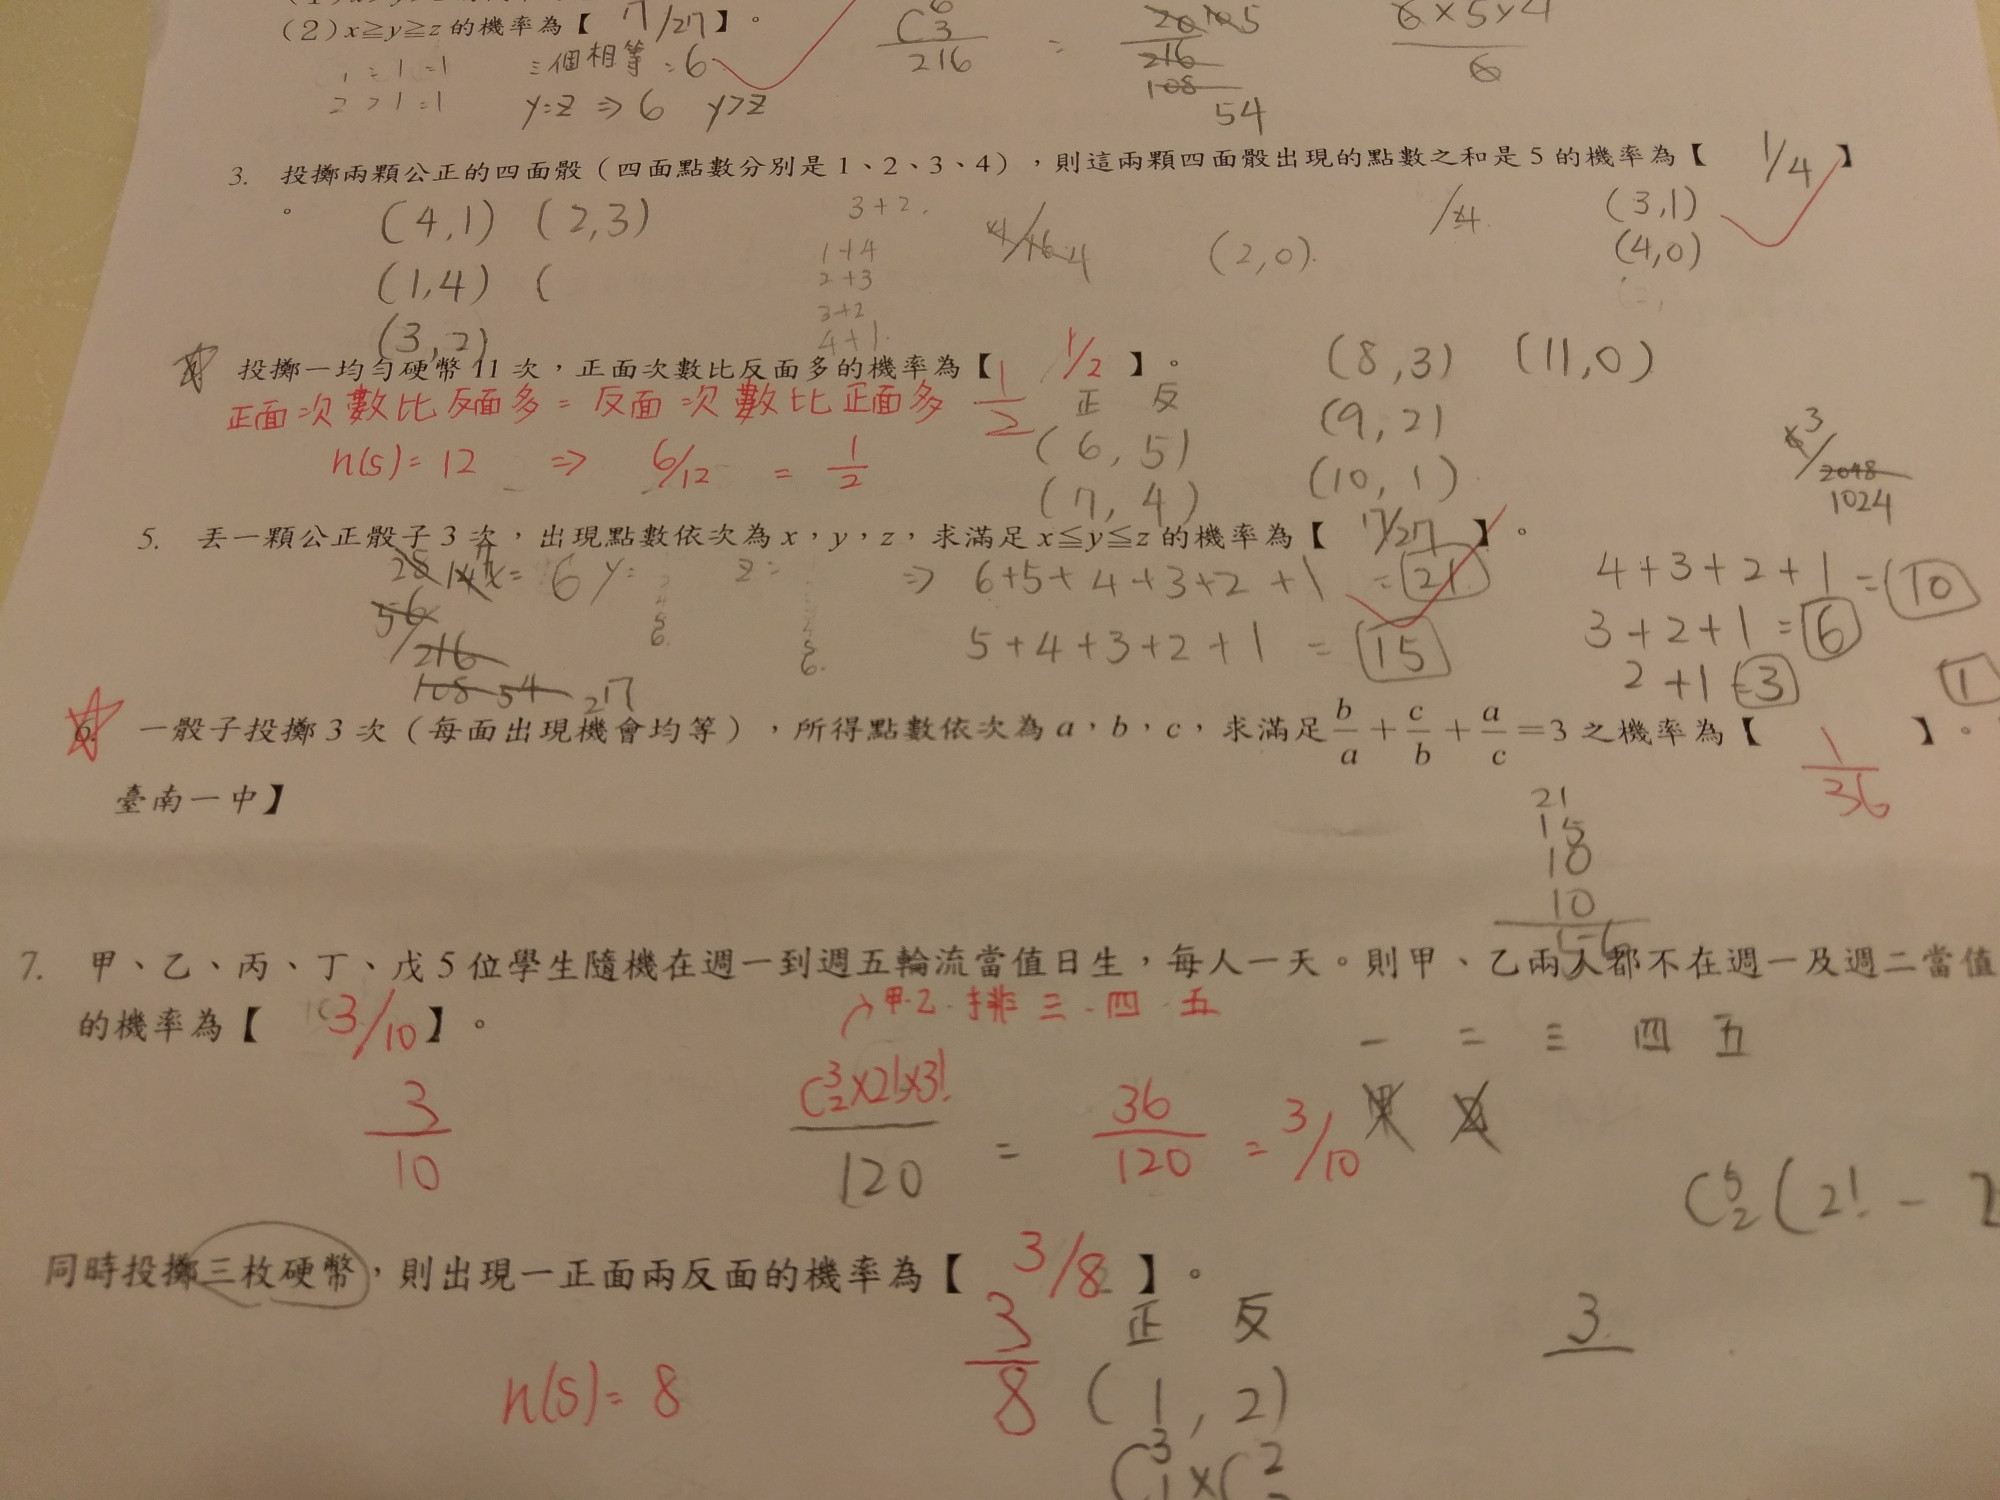 (2) x≧y≧z 的機率為【 7/27 】。
1=1=1 三個相等=6
2>1=1 y=z ⇒ 6 y>z
C 6 3 / 216 = 20 10 5 / 216 108 54
6×5×4 / 6
3. 投擲兩顆公正的四面骰(四面點數分別是1、2、3、4),則這兩顆四面骰出現的點數之和是5的機率為【 1/4 】
。
(4,1) (2,3) 3+2. (3,1)
(1,4) ( 1+4 4/16 4 (2,0). (4,0)
2+3
3+2
(3,2) 4+1.
投擲一均勻硬幣11次,正面次數比反面多的機率為【 1/2 】。 (8,3) (11,0)
正面次數比反面多=反面次數比正面多 1/2 正 反 (9,2)
n(s)=12 ⇒ 6/12 = 1/2 (6,5) (10,1)
(7,4)
3/2048 1024
5. 丟一顆公正骰子3次,出現點數依次為x,y,z,求滿足x≦y≦z的機率為【 7/27 】。
28 14 7 x= 6 y= z= ⇒ 6+5+4+3+2+1 =21 4+3+2+1=10
56/216 5+4+3+2+1 =15 3+2+1=6
108 54 27 2+1=3 1
6. 一骰子投擲3次(每面出現機會均等),所得點數依次為a,b,c,求滿足b/a+c/b+a/c=3之機率為【 1/36 】。
臺南一中】
21
15
10
10
56
7. 甲、乙、丙、丁、戊5位學生隨機在週一到週五輪流當值日生,每人一天。則甲、乙兩人都不在週一及週二當值
的機率為【 3/10 】。
甲.乙.排三.四.五
一 二 三 四 五
甲 乙
3/10 C 3 2×2!×3! / 120 = 36/120 = 3/10
C 5 2 (2! -
同時投擲三枚硬幣,則出現一正面兩反面的機率為【 3/8 】。
3/8 正 反 3
n(s)=8 (1,2)
C 3 1×C 2